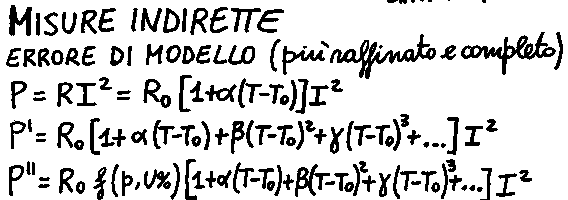 MISURE INDIRETTE
ERRORE DI MODELLO (più raffinato e completo)
P = RI² = R₀ [1+α(T-T₀)]I²
P' = R₀[1+α(T-T₀)+β(T-T₀)²+γ(T-T₀)³+...] I²
P'' = R₀ f(p,U%)[1+α(T-T₀)+β(T-T₀)²+γ(T-T₀)³+...] I²